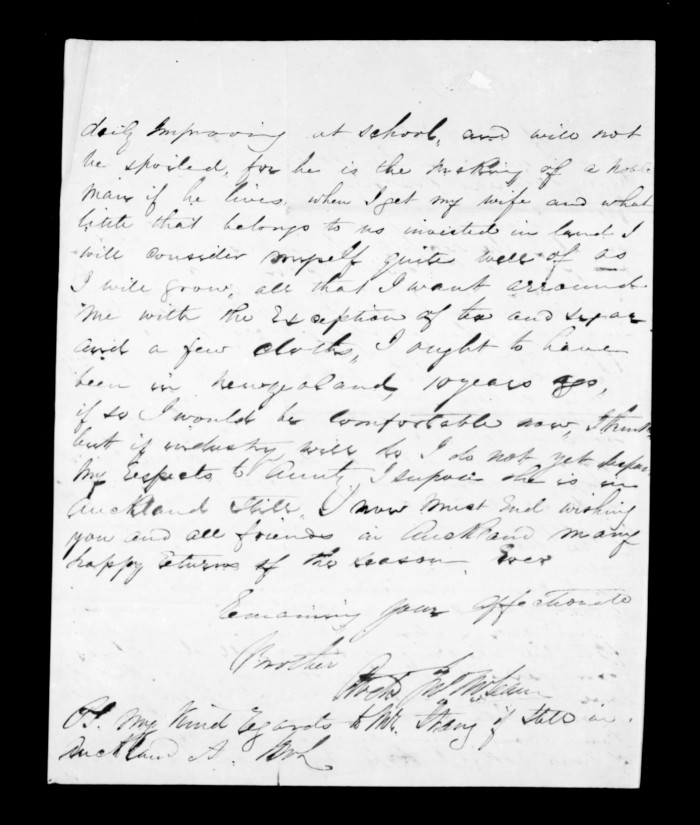 daily Improving at School, and will not
be spoiled, for he is the making of a noble
man if he lives. when I get my wife and what
little that belongs to us invested in land I
will consider myself quite well of as
I will grow, all that I want arround
me with the Exception of tea and sugar
and a few cloths, I ought to have
been in Newzealand, 10 years ago,
if so I would be comfortable now, I think
but if industry will do I do not yet despair
My Respects to Aunty, I supose she is in
Auckland Still, I now must End wishing
you and all friends in Auckland many
happy returns of the season. Ever
Remaining your affectionate
Brother
McLean
PS. My Kind Regards to Mr. Strang if still in
Auckland A.